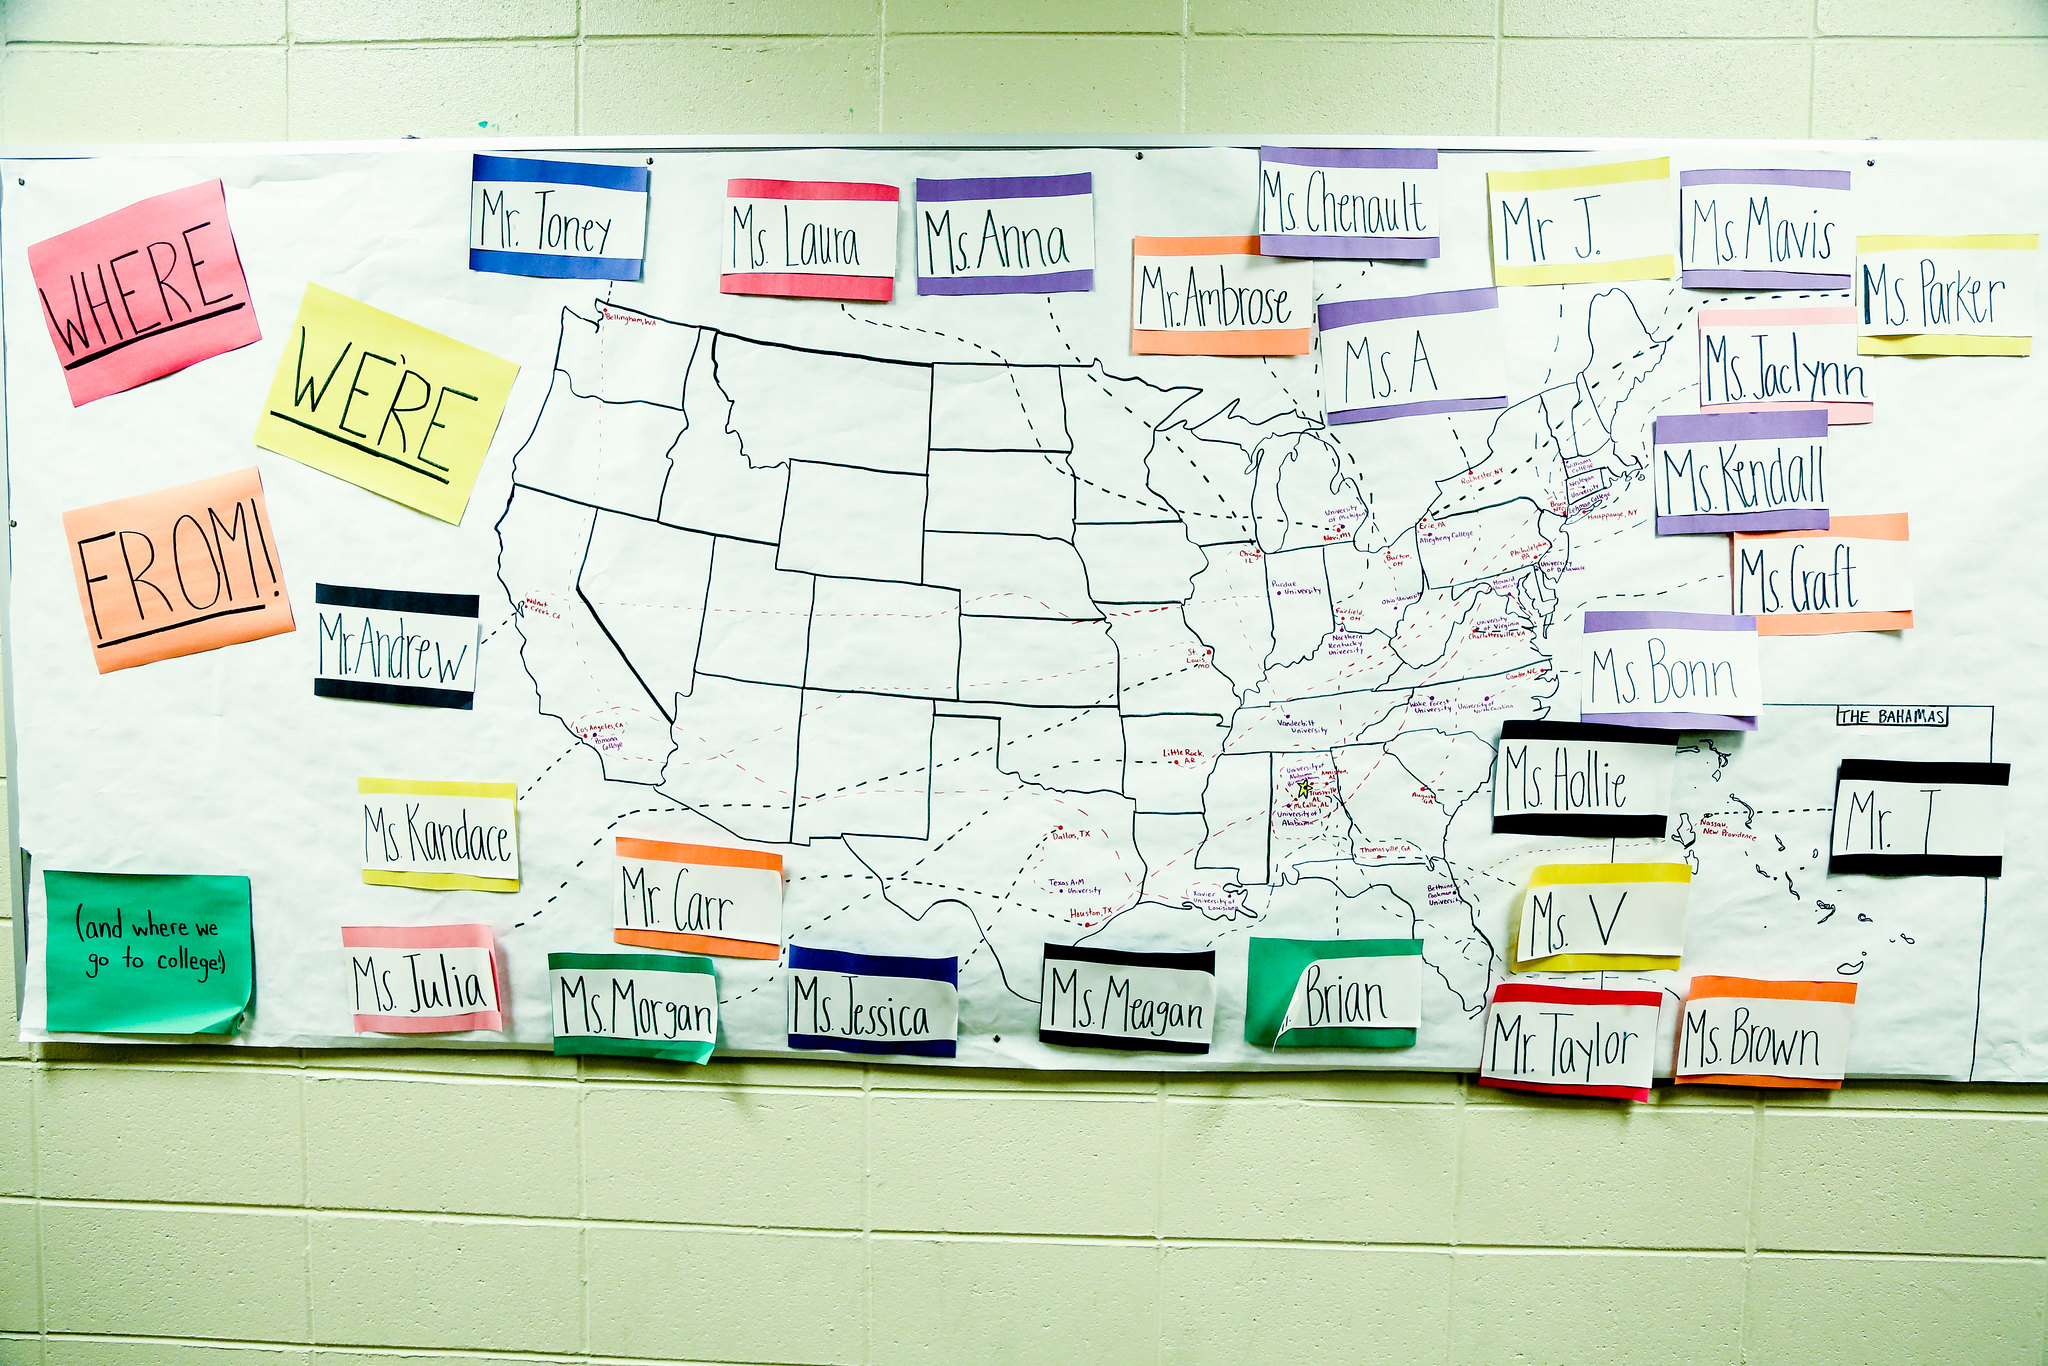 WHERE
WE'RE
FROM!
(and where we
go to college!)
Mr. Toney
Ms. Laura
Ms. Anna
Mr. Ambrose
Ms. Chenault
Ms. A
Mr J.
Ms. Mavis
Ms. Parker
Ms. Jaclynn
Ms. Kendall
Ms. Craft
Ms. Bonn
Ms. Hollie
Mr. T
Ms. V
Mr. Taylor
Ms. Brown
Brian
Ms. Meagan
Ms. Jessica
Ms. Morgan
Mr. Carr
Ms. Julia
Ms. Kandace
Mr. Andrew
THE BAHAMAS
Nassau,
New Providence
Bellingham, WA
Walnut
Creek, CA
Los Angeles, CA
Pomona
College
Dallas, TX
Texas A+M
University
Houston, TX
Little Rock,
AR
St.
Louis,
MO
Chicago,
IL
University
of Michigan
Novi, MI
Purdue
University
Fairfield,
OH
Northern
Kentucky
University
Ohio University
Burton,
OH
Erie, PA
Allegheny College
Rochester, NY
Williams
College
Wesleyan
University
Hauppauge, NY
Philadelphia,
PA
University
of Delaware
Howard
University
University
of Virginia
Charlottesville, VA
Camden, NC
Wake Forest
University
University of
North Carolina
Vanderbilt
University
University of
Alabama
Birmingham
Anniston,
AL
Trussville,
AL
McCalla, AL
University of
Alabama
Augusta,
GA
Thomasville, GA
Bethune
Cookman
University
Xavier
University of
Louisiana